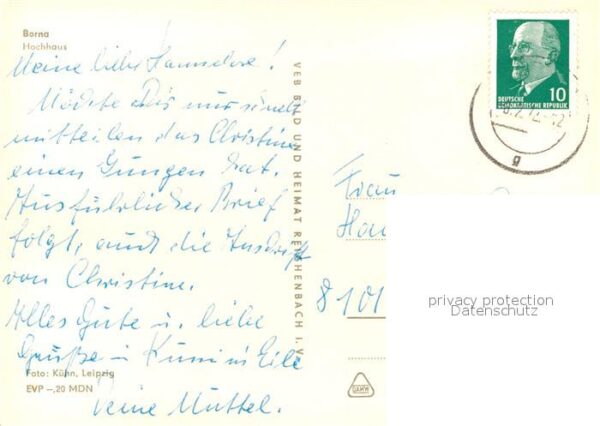 Borna
Hochhaus
Meine liebe Hannelore!
Möchte Dir nur schnell
mitteilen das Christine
einen Jungen hat.
Ausführlicher Brief
folgt, auch die Anschrift
von Christine.
Alles Gute u. liebe
Grüße in Eile
Deine Muttel.
Foto: Kühn, Leipzig
EVP –,20 MDN
VEB BILD UND HEIMAT REICHENBACH I. V.
10
DEUTSCHE
DEMOKRATISCHE REPUBLIK
g
Frau
Han
8101
privacy protection
Datenschutz